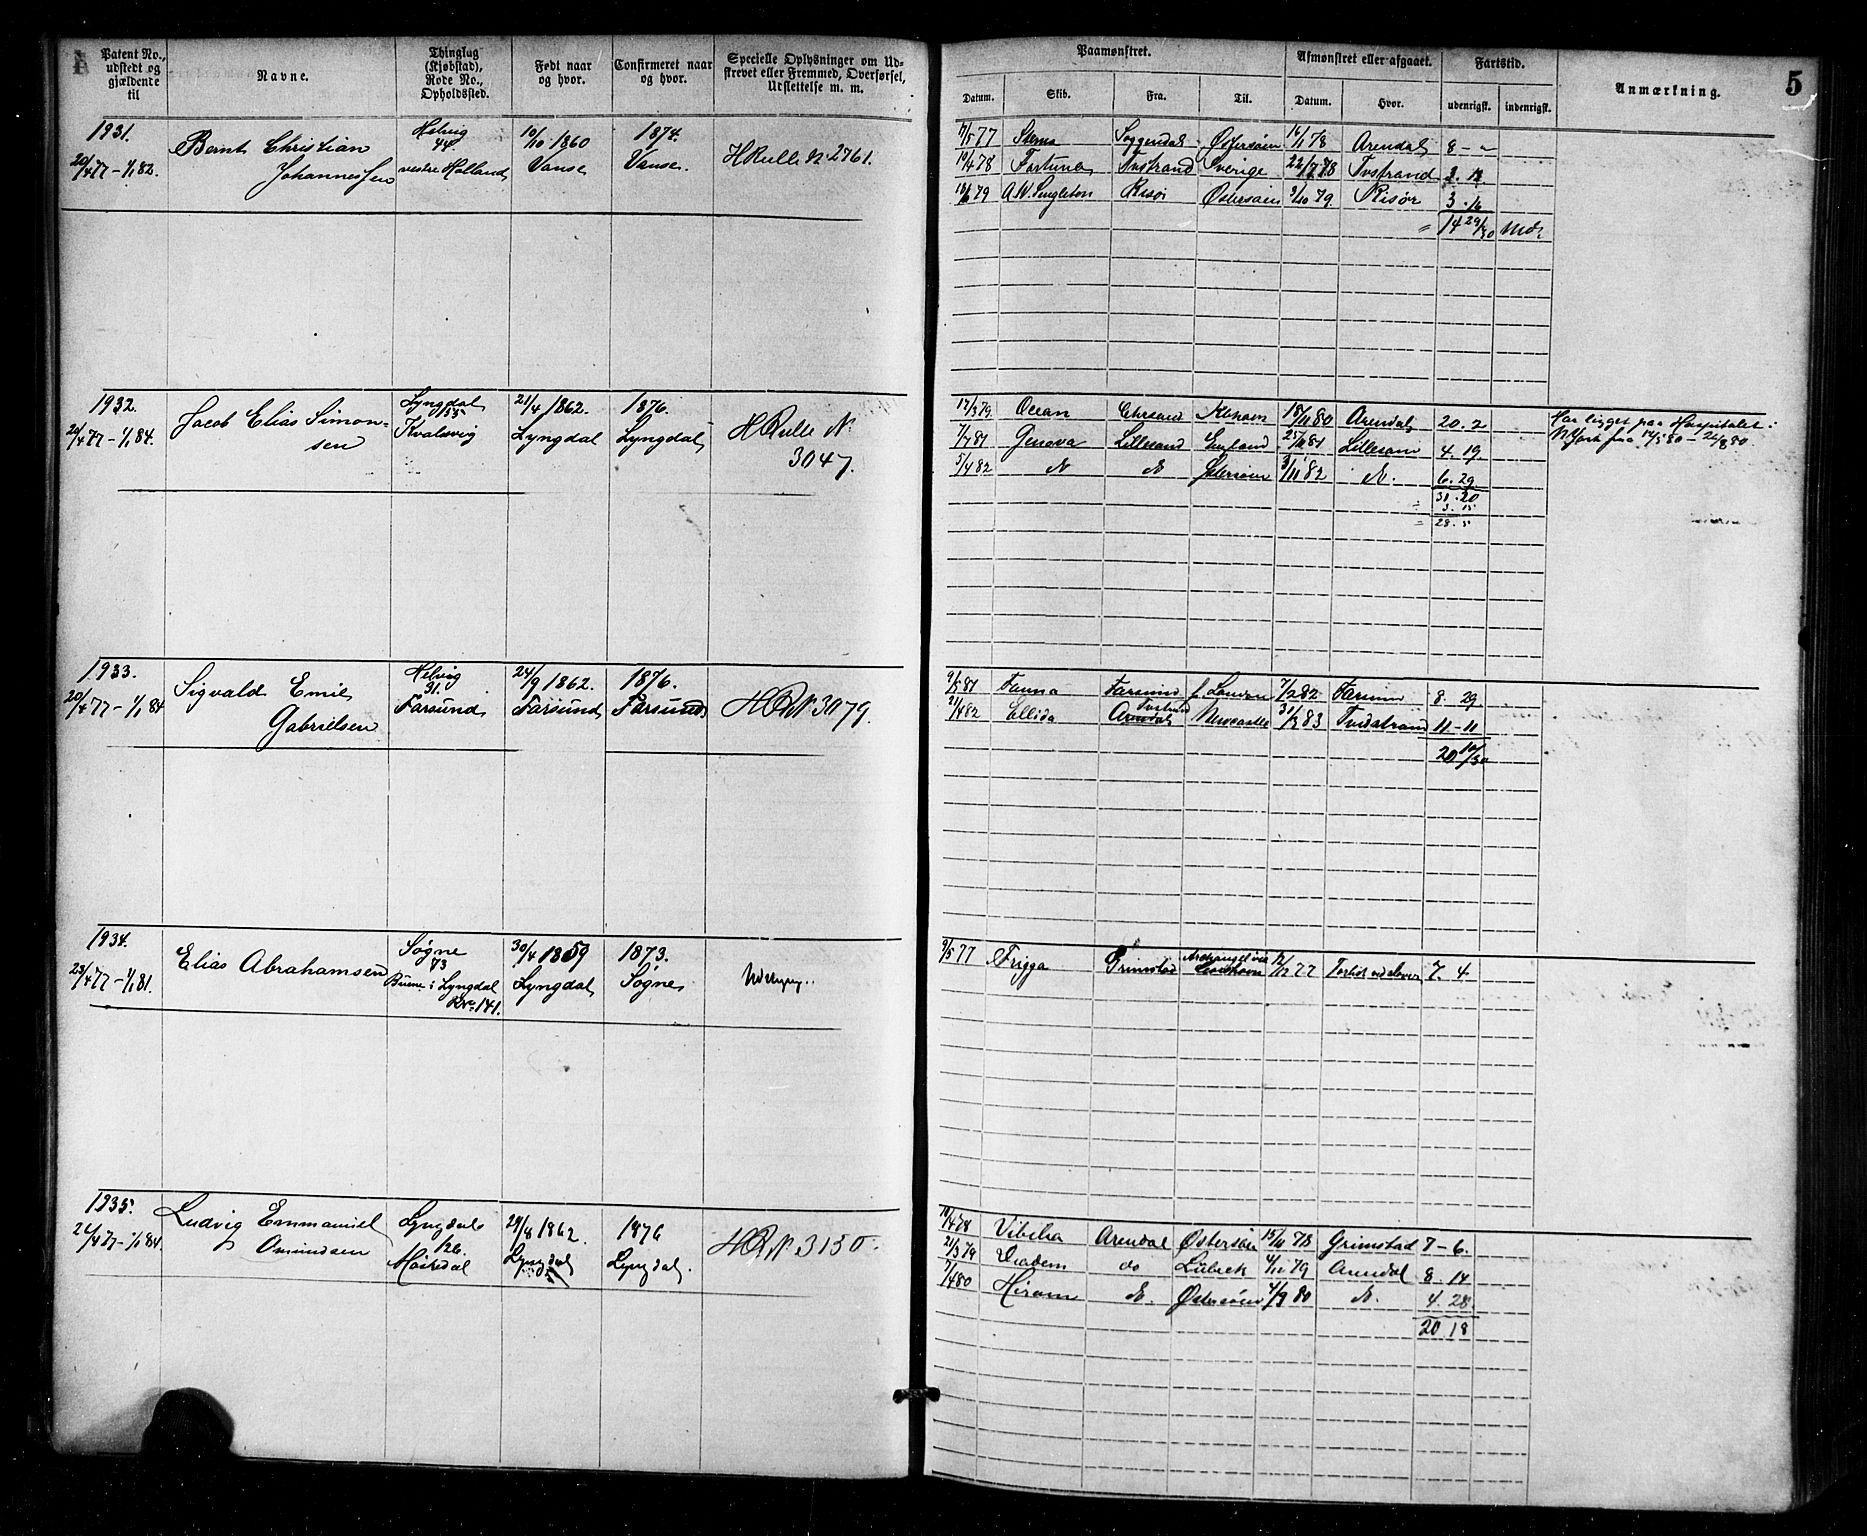 Patent No., udstedt og gjældende til
Navne.
Thinglag (Kjøbstad), Rode No., Opholdssted.
Født naar og hvor.
Confirmeret naar og hvor.
Specielle Oplysninger om Udskrevet eller Fremmed, Overførsel, Udslettelse m. m.
Paamønstret.
Afmønstret eller afgaaet.
Fartstid.
Anmærkning.
5
Datum.
Skib.
Fra.
Til.
Datum.
Hvor.
udenrigsk.
indenrigsk.
1931.
20/4 77 - 1/1 82.
Bernt Christian
Johannessen
Helvig
44
vestre Holland
10/10 1860
Vanse
1874.
Vanse.
HRulle N. 2761.
17/5 77 Soggendal Østersøen 16/1 78 Arendal 8 - "
10/4 78 Fortuna Tvstrand Sverige 22/7 78 Tvstrand
18/6 79 A W. Singleton Risør Østersøen 3/10 79. Risør 3. 16
" 14 29/30 Mdr
1932.
20/4 77 - 1/1 84.
Jacob Elias Simon-
sen
Lyngdal
155
Kvalsvig
21/4 1862.
Lyngdal
1876.
Lyngdal
HRulle N
3047.
17/3 79. Ocean Chrsand Kbhavn 18/11 80 Arendal 20. 2
Har ligget paa Hospitalet i
NYork fra 14/5 80 - 26/8 80
7/7 81 Geneva Lillesand England 25/11 81 Lillesand 4. 19.
5/4 82 Østersøen 3/11 82 6. 29.
31. 20
3. 15
28. 5
1933.
20/4 77 - 1/1 84
Sigvald Emil
Gabrielsen
Helvig
91.
Farsund
24/9 1862.
Farsund
1876.
Farsund
HRN 3079.
9/5 81 Fauna Farsund f. London 7/2 82 Farsund 8. 29
21/4 82 Ellida Arendal Newcastle 31/3 83 Tvedestrand 11 - 11
20 10/30
1934.
23/4 77 - 1/1 81.
Elias Abrahamsen
Søgne
73
i Lyngdal
No. 141.
30/4 1859
Lyngdal
1873.
Søgne
9/5 77 Frigga Grimstad Archangel 77 7. 4
1935.
24/4 77 - 1/1 84.
Ludvig Emmanuel
Omundsen
Lyngdal
126.
Møskedal
29/8 1862.
Lyngdal
1876
Lyngdal.
HRN 3130.
10/4 78 Vibilia Arendal Østersøen 15/11 78 Grimstad 7 - 6.
21/3 79 Diadem do Lübeck 4/12 79 Arendal 8. 14
7/4 80 Hiram Østersøen 4/9 80 4. 28.
20 18